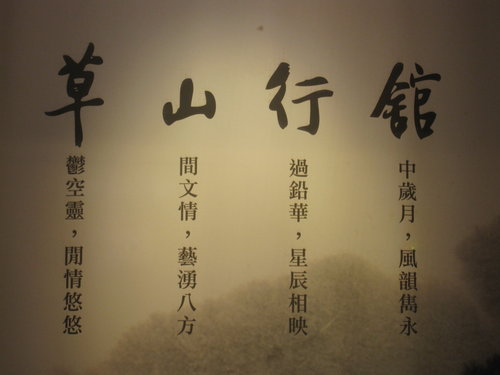 草山行舘
鬱空靈，閒情悠悠
間文情，藝湧八方
過鉛華，星辰相映
中歲月，風韻雋永